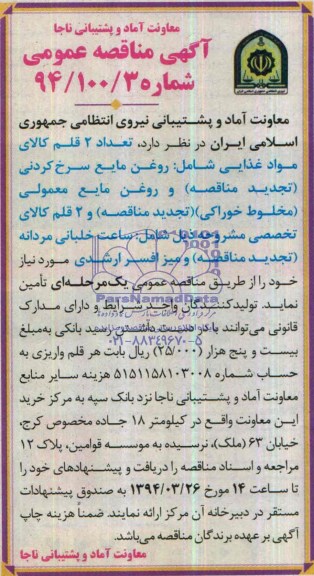 معاونت آماد و پشتیبانی ناجا
آگهی مناقصه عمومی
شماره ۹۴/۱۰۰/۳
معاونت آماد و پشــتیبانی نیروی انتظامی جمهوری
اسلامی ایران در نظر دارد، تعداد ۲ قلــم کالای
مواد غذایی شامل: روغن مایع سرخ کردنی
(تجدید مناقصه) و روغن مایع معمولی
(مخلوط خوراکی)(تجدید مناقصه) و ۲ قلم کالای
تخصصی مشروحه ذیل شامل: ساعت خلبانی مردانه
(تجدید مناقصه) و میز افسر ارشدی مورد نیاز
خود را از طریق مناقصه عمومی یک‌مرحله‌ای تأمین
نماید. تولیدکنندگان واجد شرایط و دارای مدارک
قانونی می‌توانند با در دست داشتن رسید بانکی به‌مبلغ
بیست و پنج هزار (۲۵/۰۰۰) ریال بابت هر قلم واریزی به
حساب شماره ۵۱۵۱۱۵۸۱۰۳۰۰۸ هزینه سایر منابع
معاونت آماد و پشتیبانی ناجا نزد بانک سپه به مرکز خرید
این معاونت واقع در کیلومتر ۱۸ جاده مخصوص کرج،
خیابان ۶۳ (ملک)، نرسیده به موسسه قوامین، پلاک ۱۲
مراجعه و اسناد مناقصه را دریافت و پیشنهادهای خود را
تا ساعت ۱۴ مورخ ۱۳۹۴/۰۳/۲۶ به صندوق پیشنهادات
مستقر در دبیرخانه آن مرکز ارائه نمایند. ضمناً هزینه چاپ
آگهی بر عهده برندگان مناقصه می‌باشد.
معاونت آماد و پشتیبانی ناجا
ParsNamadData
۰۲۱-۸۸۳۴۹۶۷۰-۵